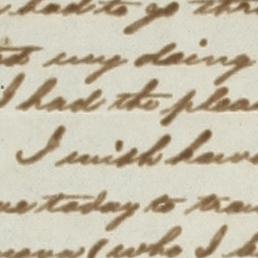 had to go thr
my doing
I had the plea
I wish have
today to tra
(who I h